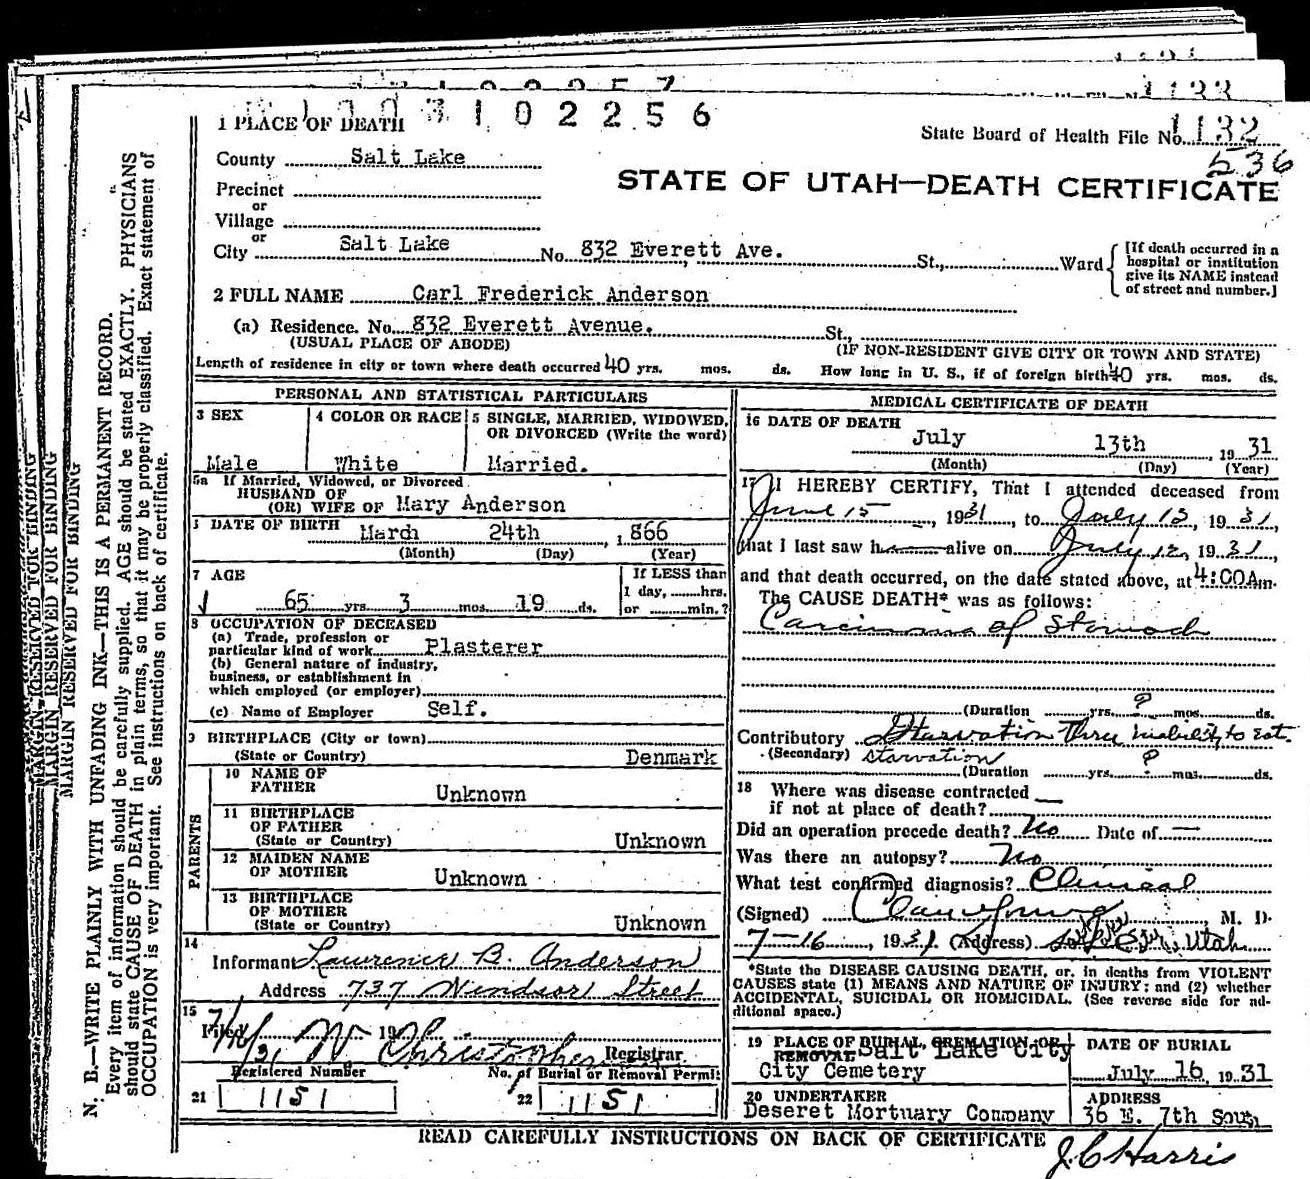 3 1 0 2 2 5 6
1 PLACE OF DEATH
State Board of Health File No. 1132
536
County Salt Lake
STATE OF UTAH—DEATH CERTIFICATE
Precinct
or
Village
or
City Salt Lake No. 832 Everett Ave. St., Ward
[If death occurred in a
hospital or institution
give its NAME instead
of street and number.]
2 FULL NAME Carl Frederick Anderson
(a) Residence. No. 832 Everett Avenue. St.,
(USUAL PLACE OF ABODE) (IF NON-RESIDENT GIVE CITY OR TOWN AND STATE)
Length of residence in city or town where death occurred 40 yrs. mos. ds. How long in U. S., if of foreign birth 40 yrs. mos. ds.
PERSONAL AND STATISTICAL PARTICULARS
3 SEX
Male
4 COLOR OR RACE
White
5 SINGLE, MARRIED, WIDOWED,
OR DIVORCED (Write the word)
Married.
5a If Married, Widowed, or Divorced
HUSBAND OF
(OR) WIFE OF Mary Anderson
DATE OF BIRTH March 24th , 1866
(Month) (Day) (Year)
7 AGE
65 yrs. 3 mos. 19 ds.
If LESS than
1 day, hrs.
or min.?
8 OCCUPATION OF DECEASED
(a) Trade, profession or
particular kind of work Plasterer
(b) General nature of industry,
business, or establishment in
which employed (or employer)
(c) Name of Employer Self.
9 BIRTHPLACE (City or town)
(State or Country) Denmark
PARENTS
10 NAME OF
FATHER Unknown
11 BIRTHPLACE
OF FATHER
(State or Country) Unknown
12 MAIDEN NAME
OF MOTHER Unknown
13 BIRTHPLACE
OF MOTHER
(State or Country) Unknown
14
Informant Lawrence B. Anderson
Address 737 Windsor Street
15
Filed 7/16/31 19 W Christopherson Registrar
Registered Number No. of Burial or Removal Permit
21 1151 22 1151
MEDICAL CERTIFICATE OF DEATH
16 DATE OF DEATH
July 13th , 19 31
(Month) (Day) (Year)
17 I HEREBY CERTIFY, That I attended deceased from
June 15 , 1931, to July 13, 1931,
that I last saw h alive on July 12, 1931,
and that death occurred, on the date stated above, at 4:00 Am.
The CAUSE DEATH* was as follows:
Carcinoma of Stomach
(Duration yrs. ? mos. ds.
Contributory Starvation Thru inability to eat.
(Secondary) starvation
(Duration yrs. ? mos. ds.
18 Where was disease contracted
if not at place of death?
Did an operation precede death? No Date of —
Was there an autopsy? No
What test confirmed diagnosis? Clinical
(Signed) M. D.
7-16, 1931 (Address) Utah
*State the DISEASE CAUSING DEATH, or, in deaths from VIOLENT
CAUSES state (1) MEANS AND NATURE OF INJURY; and (2) whether
ACCIDENTAL, SUICIDAL OR HOMICIDAL. (See reverse side for ad-
ditional space.)
19 PLACE OF BURIAL, CREMATION, OR
REMOVAL Salt Lake City
City Cemetery
DATE OF BURIAL
July 16, 1931
20 UNDERTAKER
Deseret Mortuary Company
ADDRESS
36 E. 7th South
READ CAREFULLY INSTRUCTIONS ON BACK OF CERTIFICATE
J. C. Harris
MARGIN RESERVED FOR BINDING
MARGIN RESERVED FOR BINDING
MARGIN RESERVED FOR BINDING
N. B.—WRITE PLAINLY WITH UNFADING INK—THIS IS A PERMANENT RECORD.
Every item of information should be carefully supplied. AGE should be stated EXACTLY. PHYSICIANS
should state CAUSE OF DEATH in plain terms, so that it may be properly classified. Exact statement of
OCCUPATION is very important. See instructions on back of certificate.